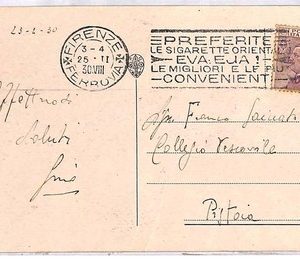 23-2-30
FIRENZE
FERROVIA
3-4
25·II
30VIII
PREFERITE
LE SIGARETTE ORIENTA
EVA EJA!
LE MIGLIORI E LE PIÙ
CONVENIENTI
Affettuosi
saluti
Gino
Franco
Collegio Vescovile
Pistoia